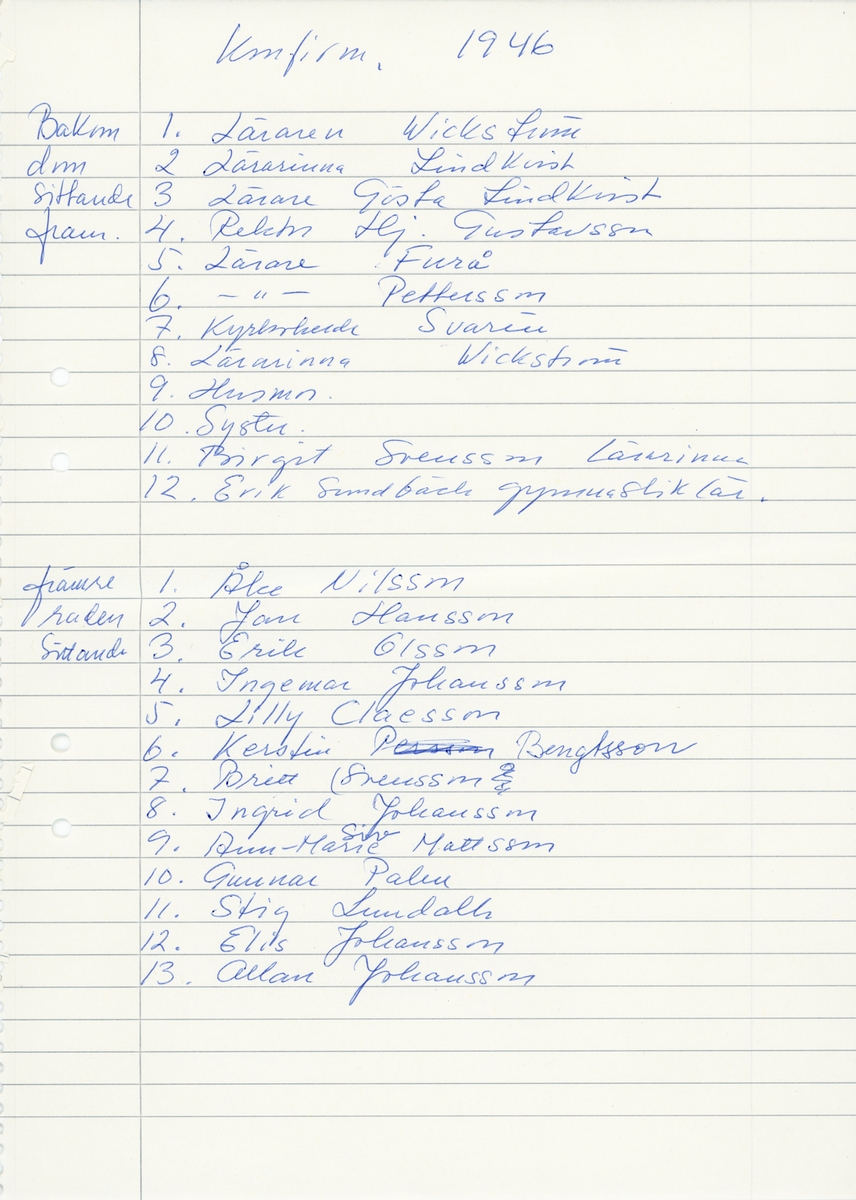 Konfirm. 1946
Bakom 1. Läraren Wickström
dom 2 Lärarinna Lindkvist
Sittande 3 Lärare Gösta Lindkvist
fram. 4. Rektor Hj. Gustavsson
5. Lärare Furå
6. — " — Pettersson
7. Kyrkoherde Svarén
8. Lärarinna Wickström
9. Husmor.
10. Syster.
11. Birgit Svensson Lärarinna
12. Erik Sundbäck gymnastik lär.
främre 1. Åke Nilsson
raden 2. Jan Hansson
Sittande 3. Erik Olsson
4. Ingemar Johansson
5. Lilly Claesson
6. Kerstin Persson Bengtsson
7. Britt (Svensson
8. Ingrid Johansson
Siv
9. Ann-Marie Mattsson
10. Gunnar Palm
11. Stig Lundahl
12. Elis Johansson
13. Allan Johansson